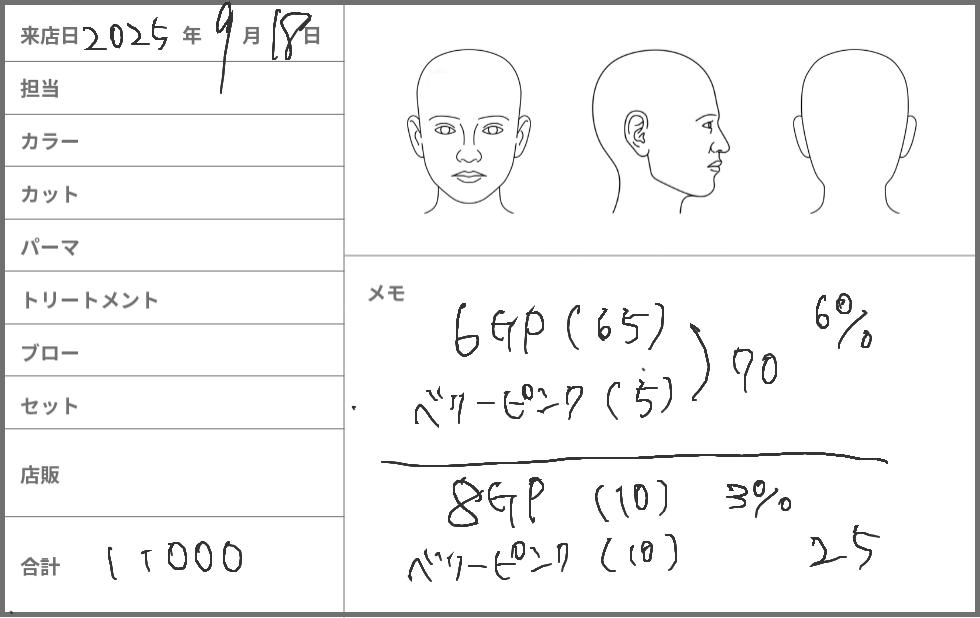 来店日 2025 年 9 月 18 日
担当
カラー
カット
パーマ
トリートメント
ブロー
セット
店販
合計 11000
メモ
6GP (65)
6%
ベリーピンク (5)
70
8GP (10) 3%
ベリーピンク (10)
25